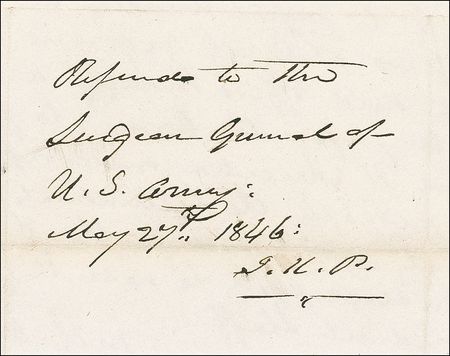 Refered to the
Surgeon General of
U.S. Army:
May 27th. 1846:
J.K.P.